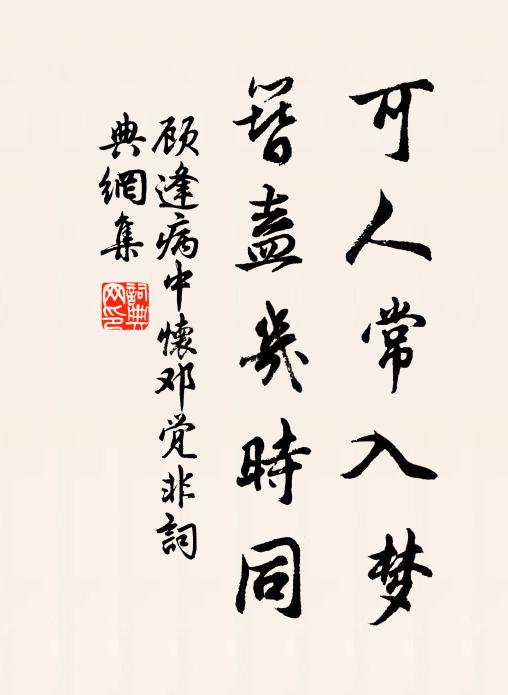 可人常入梦
簪盍幾時同
顾逢病中懷邓觉非詞
典網集
詞典
网印